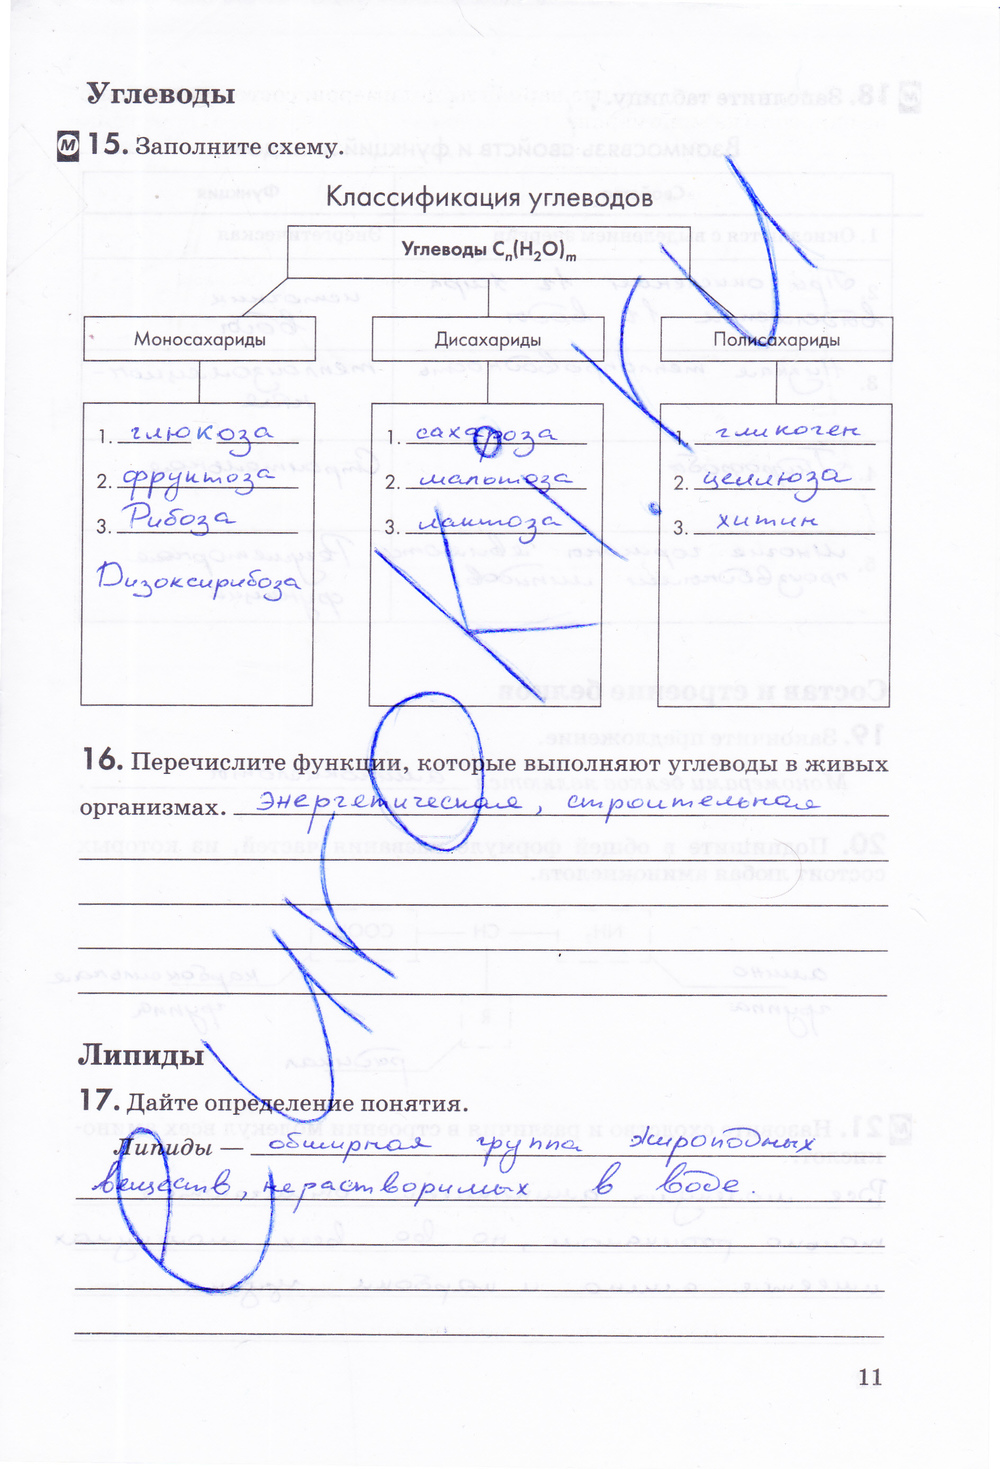 Углеводы
М 15. Заполните схему.
Классификация углеводов
Углеводы Cn(H2O)m
Моносахариды
Дисахариды
Полисахариды
1. глюкоза
2. фруктоза
3. Рибоза
Дизоксирибоза
1. сахароза
2. малотоза
3. лактоза
1. гликоген
2. целлюза
3. хитин
16. Перечислите функции, которые выполняют углеводы в живых
организмах. Энергетическая, строительная
Липиды
17. Дайте определение понятия.
Липиды — обширная группа жироподных
веществ, нерастворимых в воде.
11